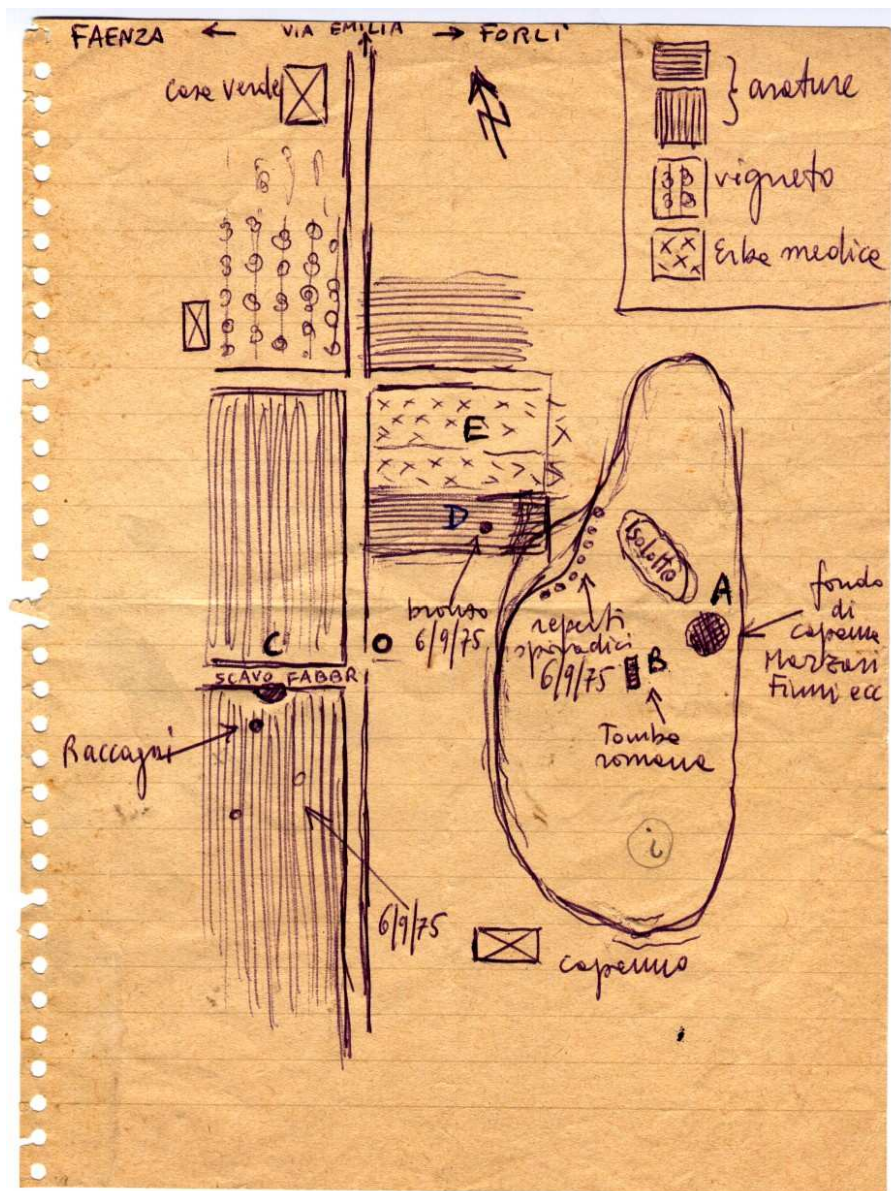 FAENZA ← VIA EMILIA → FORLI'
Casa Verde
arature
vigneto
Erba medica
E
D
bronzo
6/9/75
reperti
sporadici
6/9/75
Isolotto
A
fondo
di
capanna
Marzari
Fiumi ecc
B
Tomba
romana
C
O
SCAVO FABBR
Raccagni
6/9/75
i
capanno